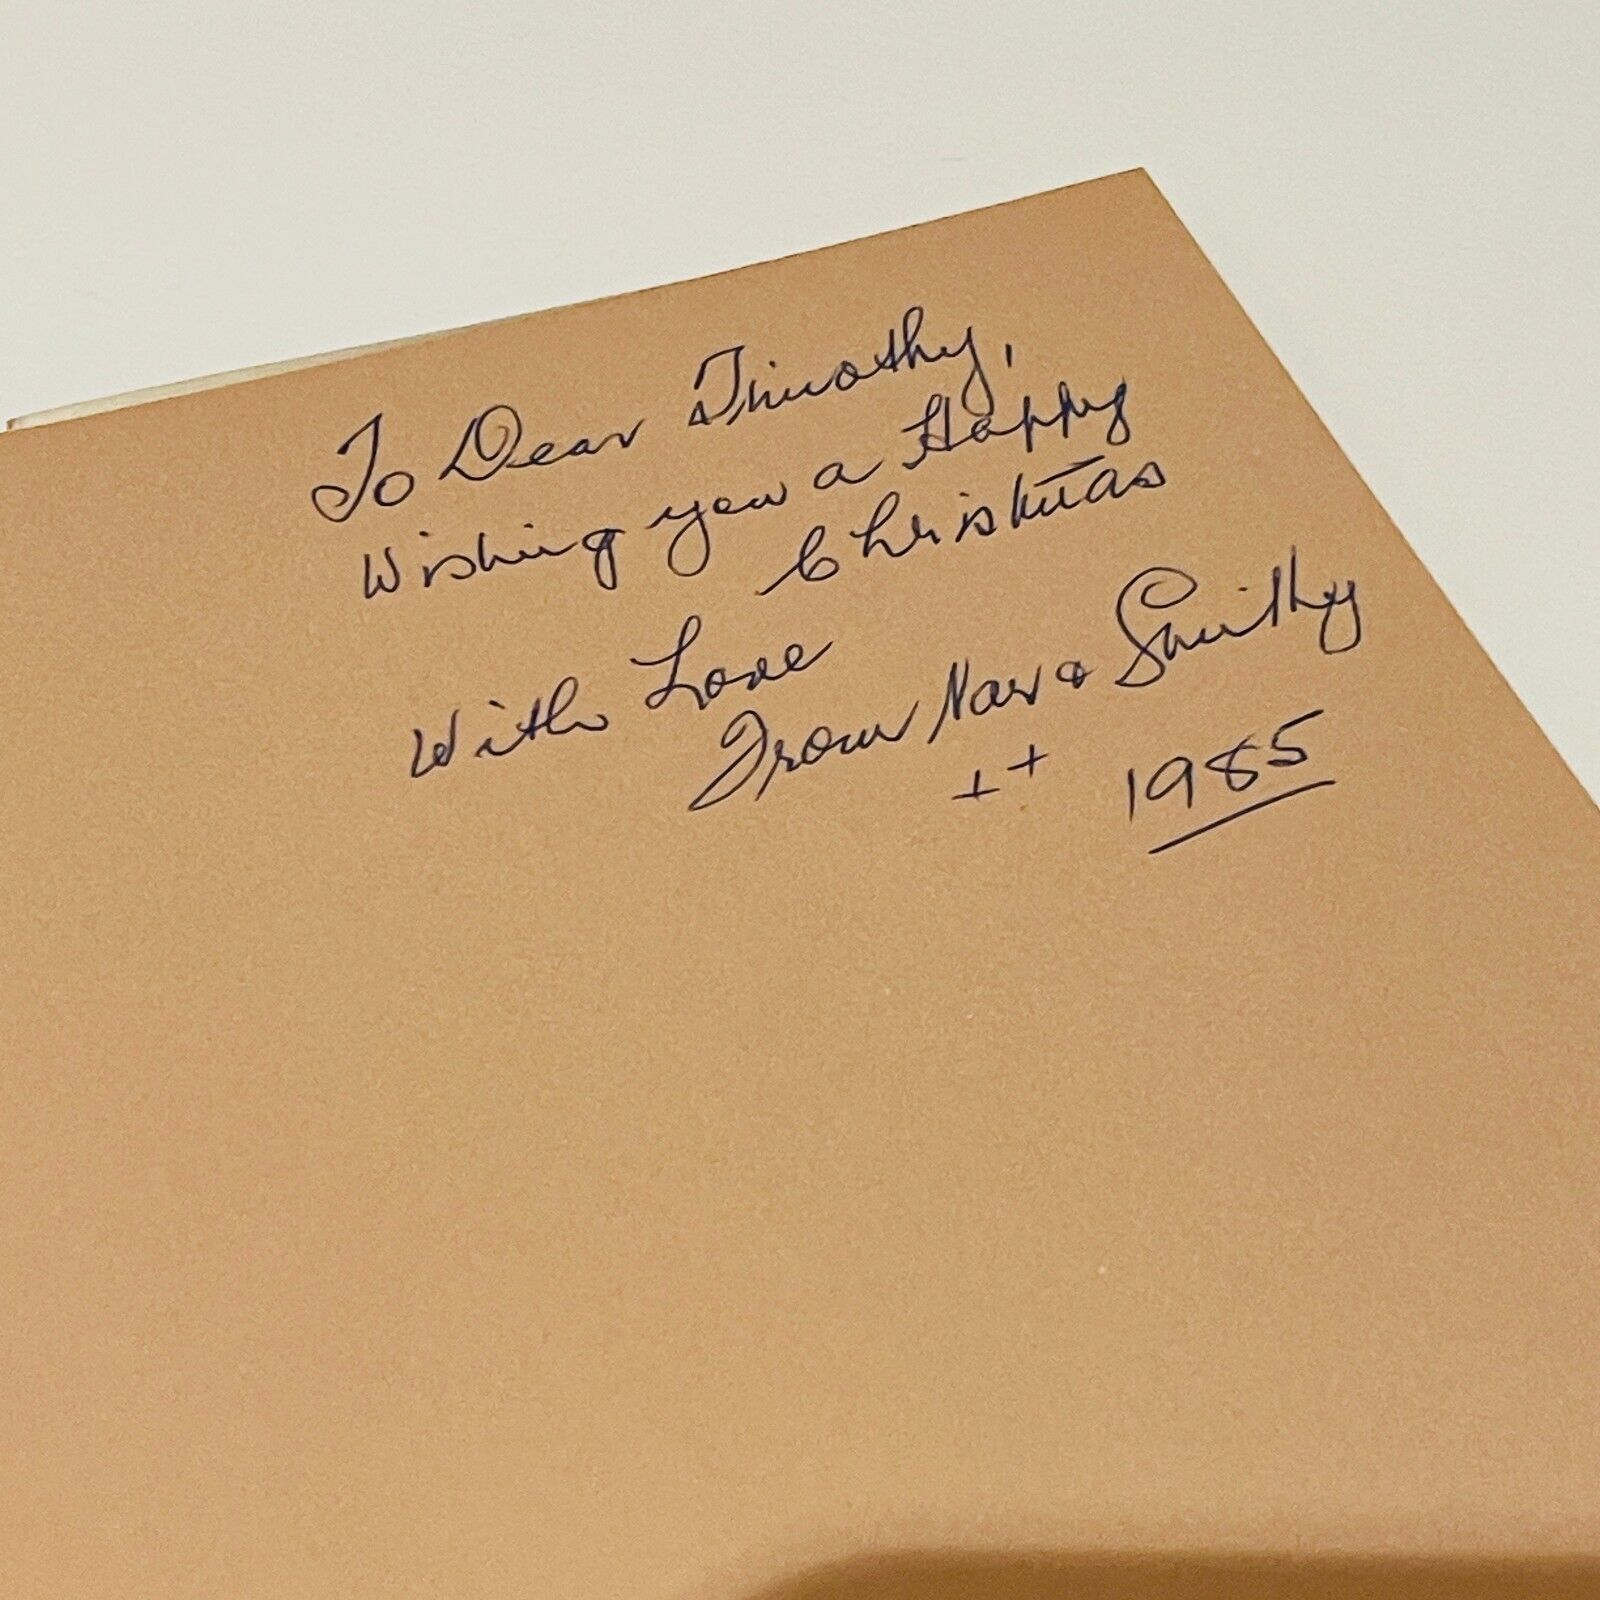 To Dear Timothy,
Wishing you a Happy
Christmas
With Love
From Nan & Smithy
++ 1985